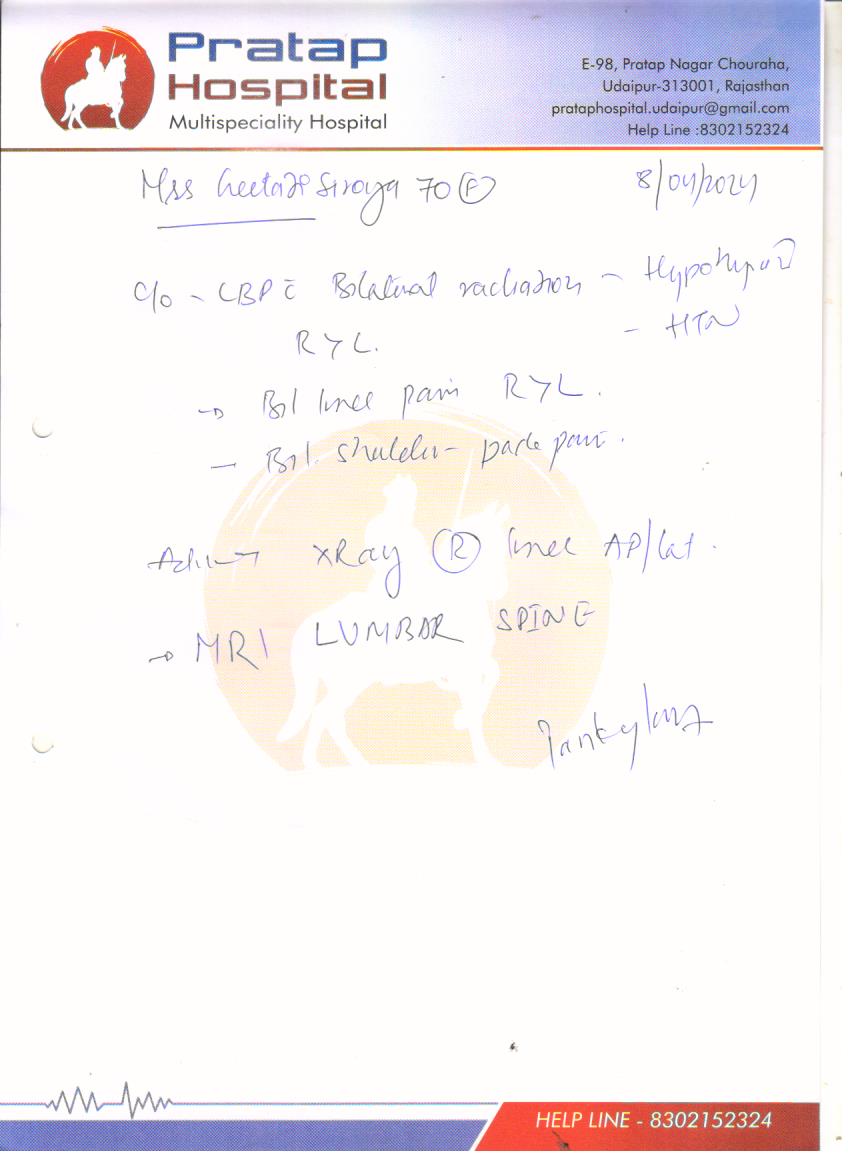 Pratap
Hospital
Multispeciality Hospital
E-98, Pratap Nagar Chouraha,
Udaipur-313001, Rajasthan
prataphospital.udaipur@gmail.com
Help Line :8302152324
Mrs Geeta 70 (F)
8/04/2024
C/o - LBP c̄ Bilateral radiation
R > L.
- Hypothyroid
- HTN
→ B/L knee pain R > L.
- B/L shoulder pain.
Adv → XRay (R) knee AP/Lat.
→ MRI LUMBAR SPINE
HELP LINE - 8302152324